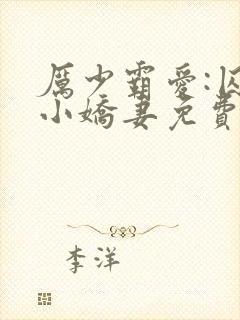 厲少霸愛:囚
小嬌妻免費
李洋